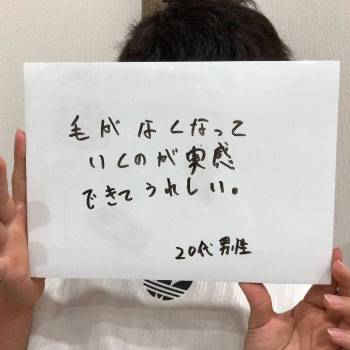 毛がなくなって
いくのが実感
できてうれしい。
20代男性